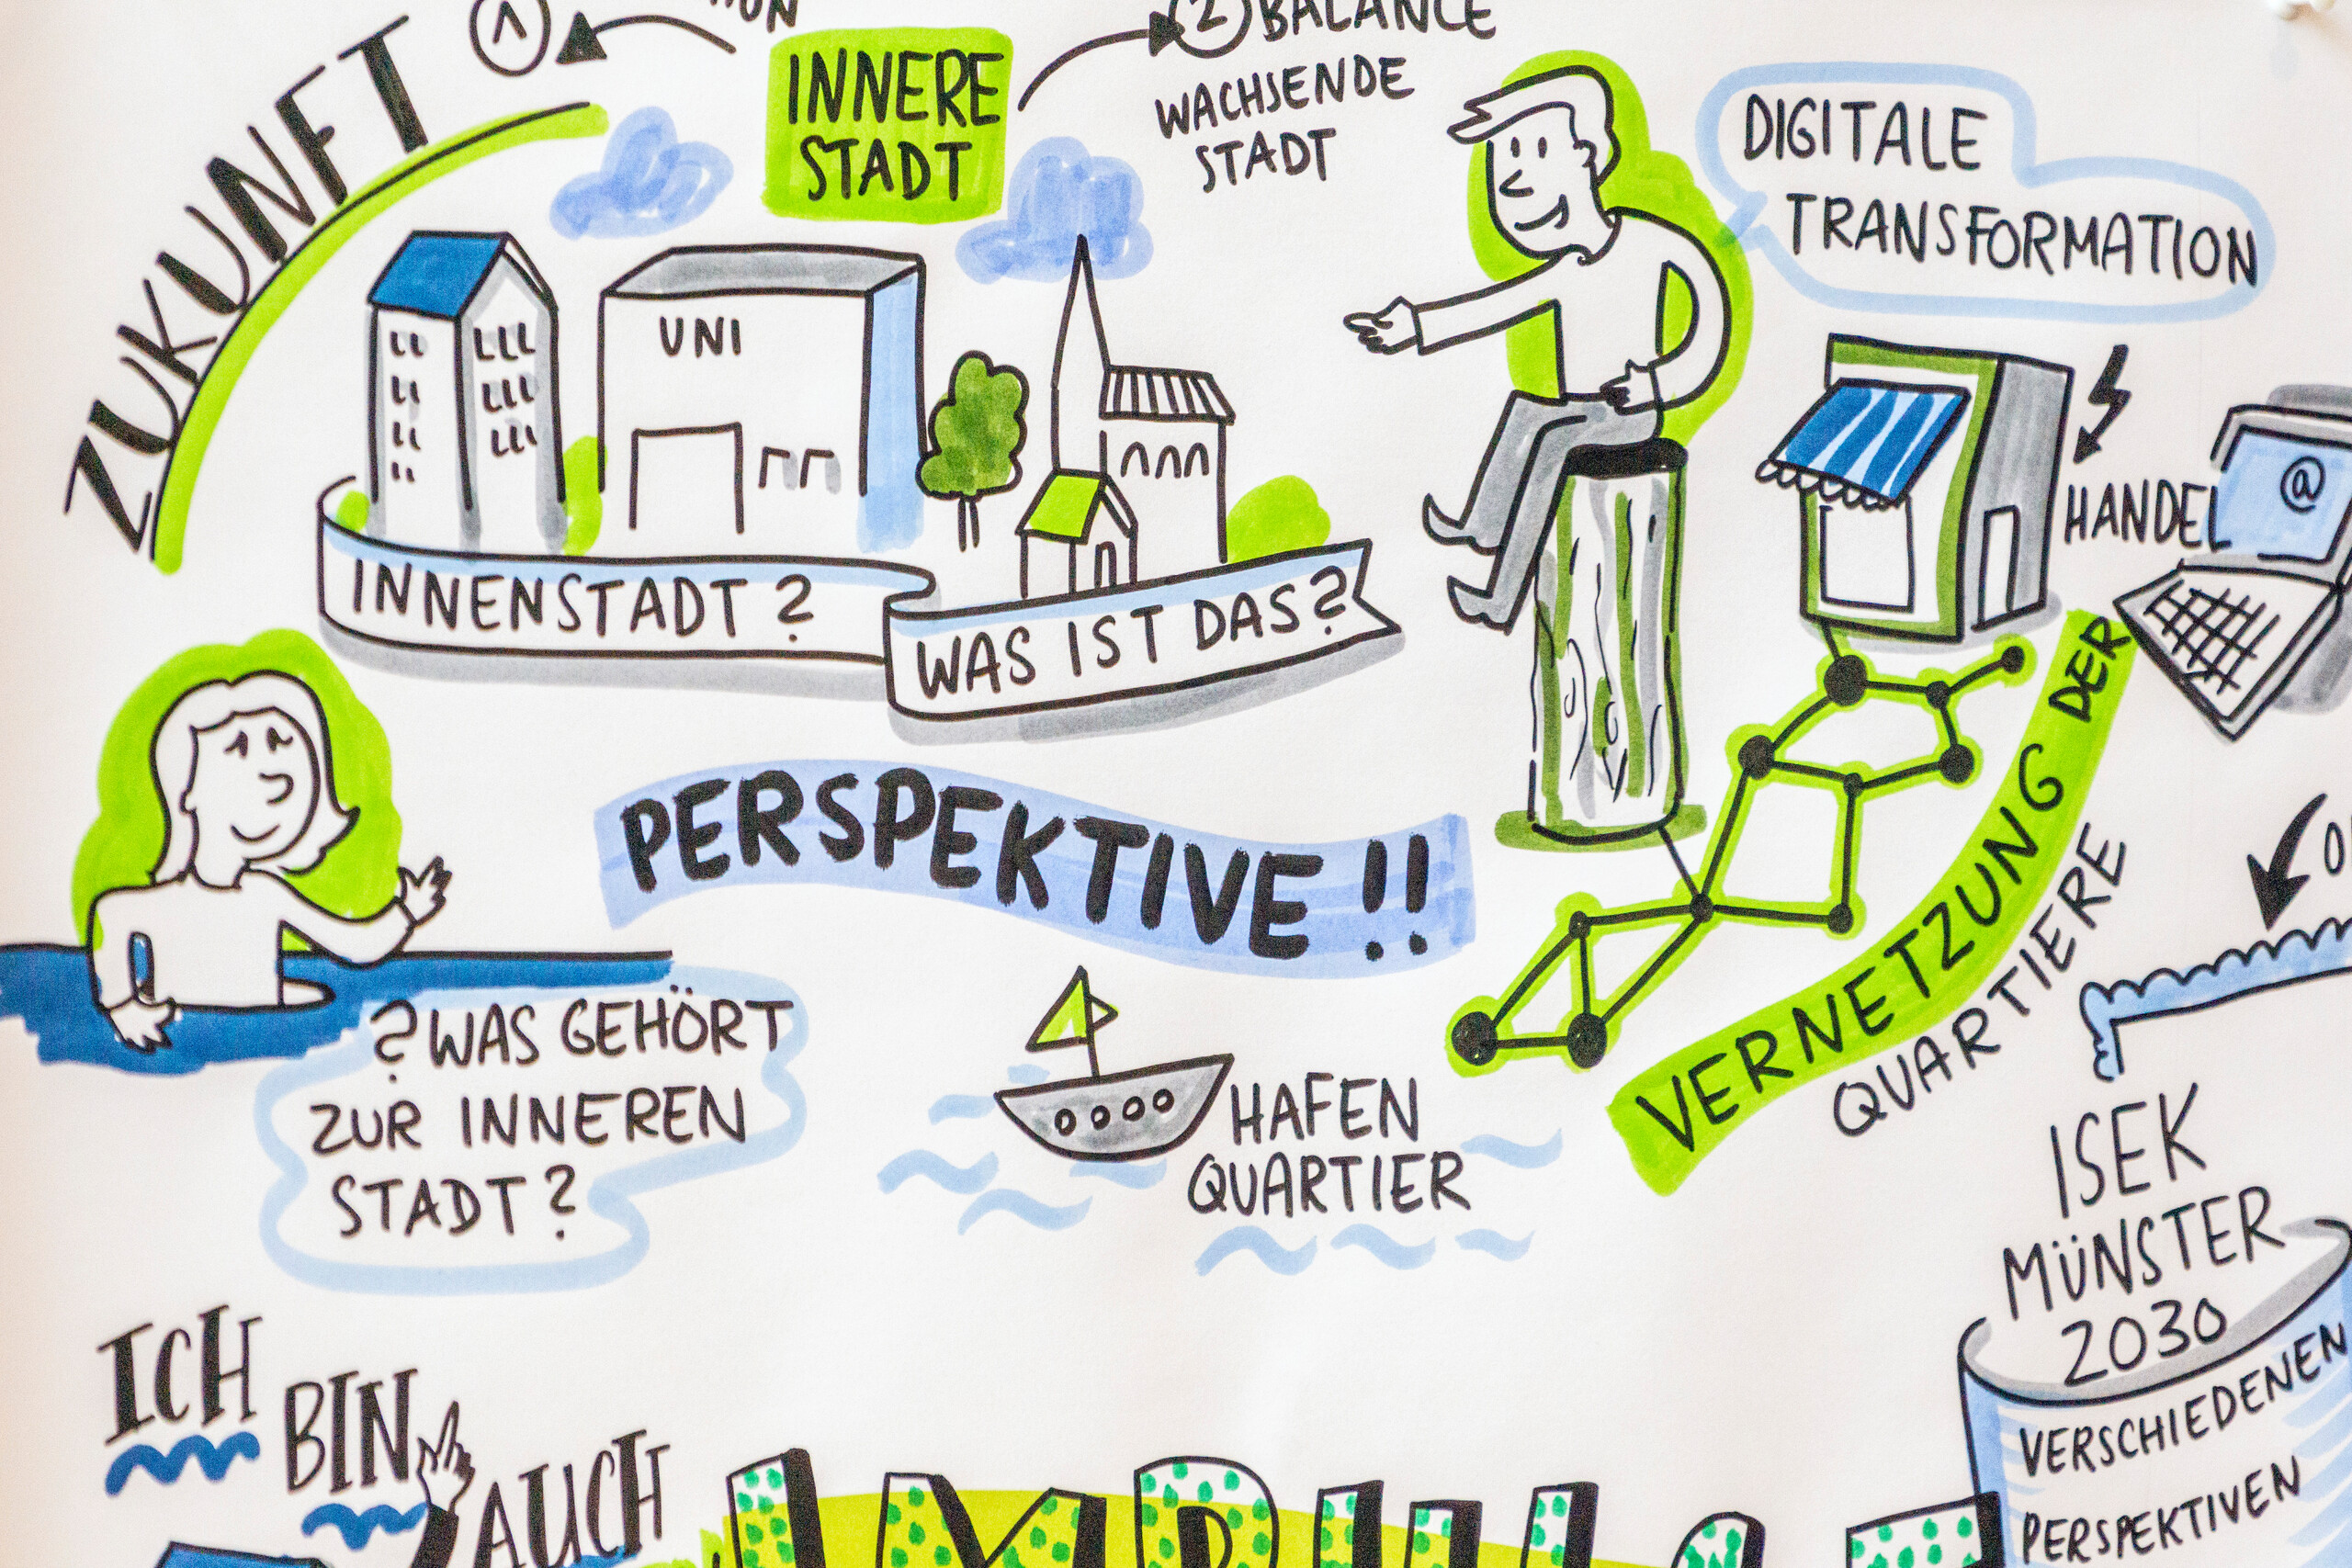 ZUKUNFT
1
INNERE
STADT
2 BALANCE
WACHSENDE
STADT
DIGITALE
TRANSFORMATION
UNI
INNENSTADT?
WAS IST DAS?
HANDEL
@
PERSPEKTIVE!!
VERNETZUNG DER
QUARTIERE
?WAS GEHÖRT
ZUR INNEREN
STADT?
HAFEN
QUARTIER
ISEK
MÜNSTER
2030
VERSCHIEDENEN
PERSPEKTIVEN
ICH
BIN
AUCH